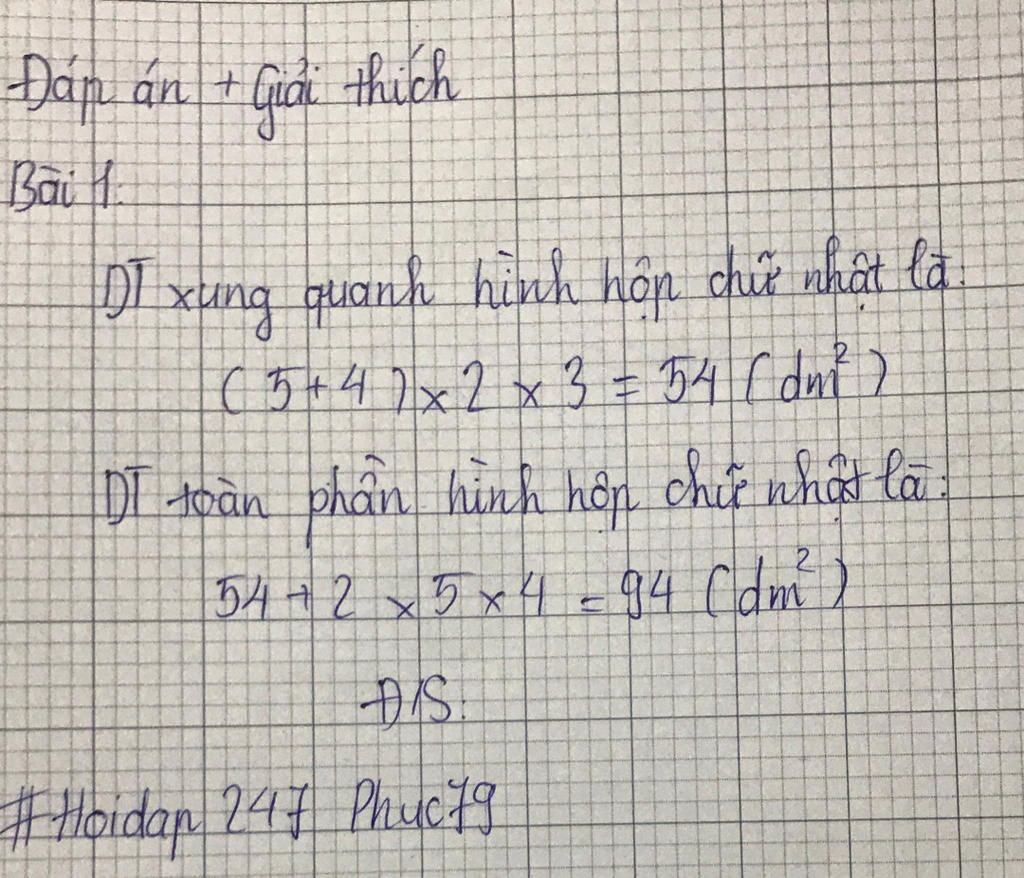 Đáp án + Giải thích
Bài 1:
DT xung quanh hình hộp chữ nhật là:
(5+4) x 2 x 3 = 54 (dm²)
DT toàn phần hình hộp chữ nhật là:
54 + 2 x 5 x 4 = 94 (dm²)
Đ/S:
#Hoidap 247 Phuc79